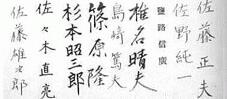 佐藤正夫
佐野純一
鹽路信廣
椎名晴夫
島崎篤夫
篠原隆
杉本昭三郎
佐々木直亮
佐藤雄次郎